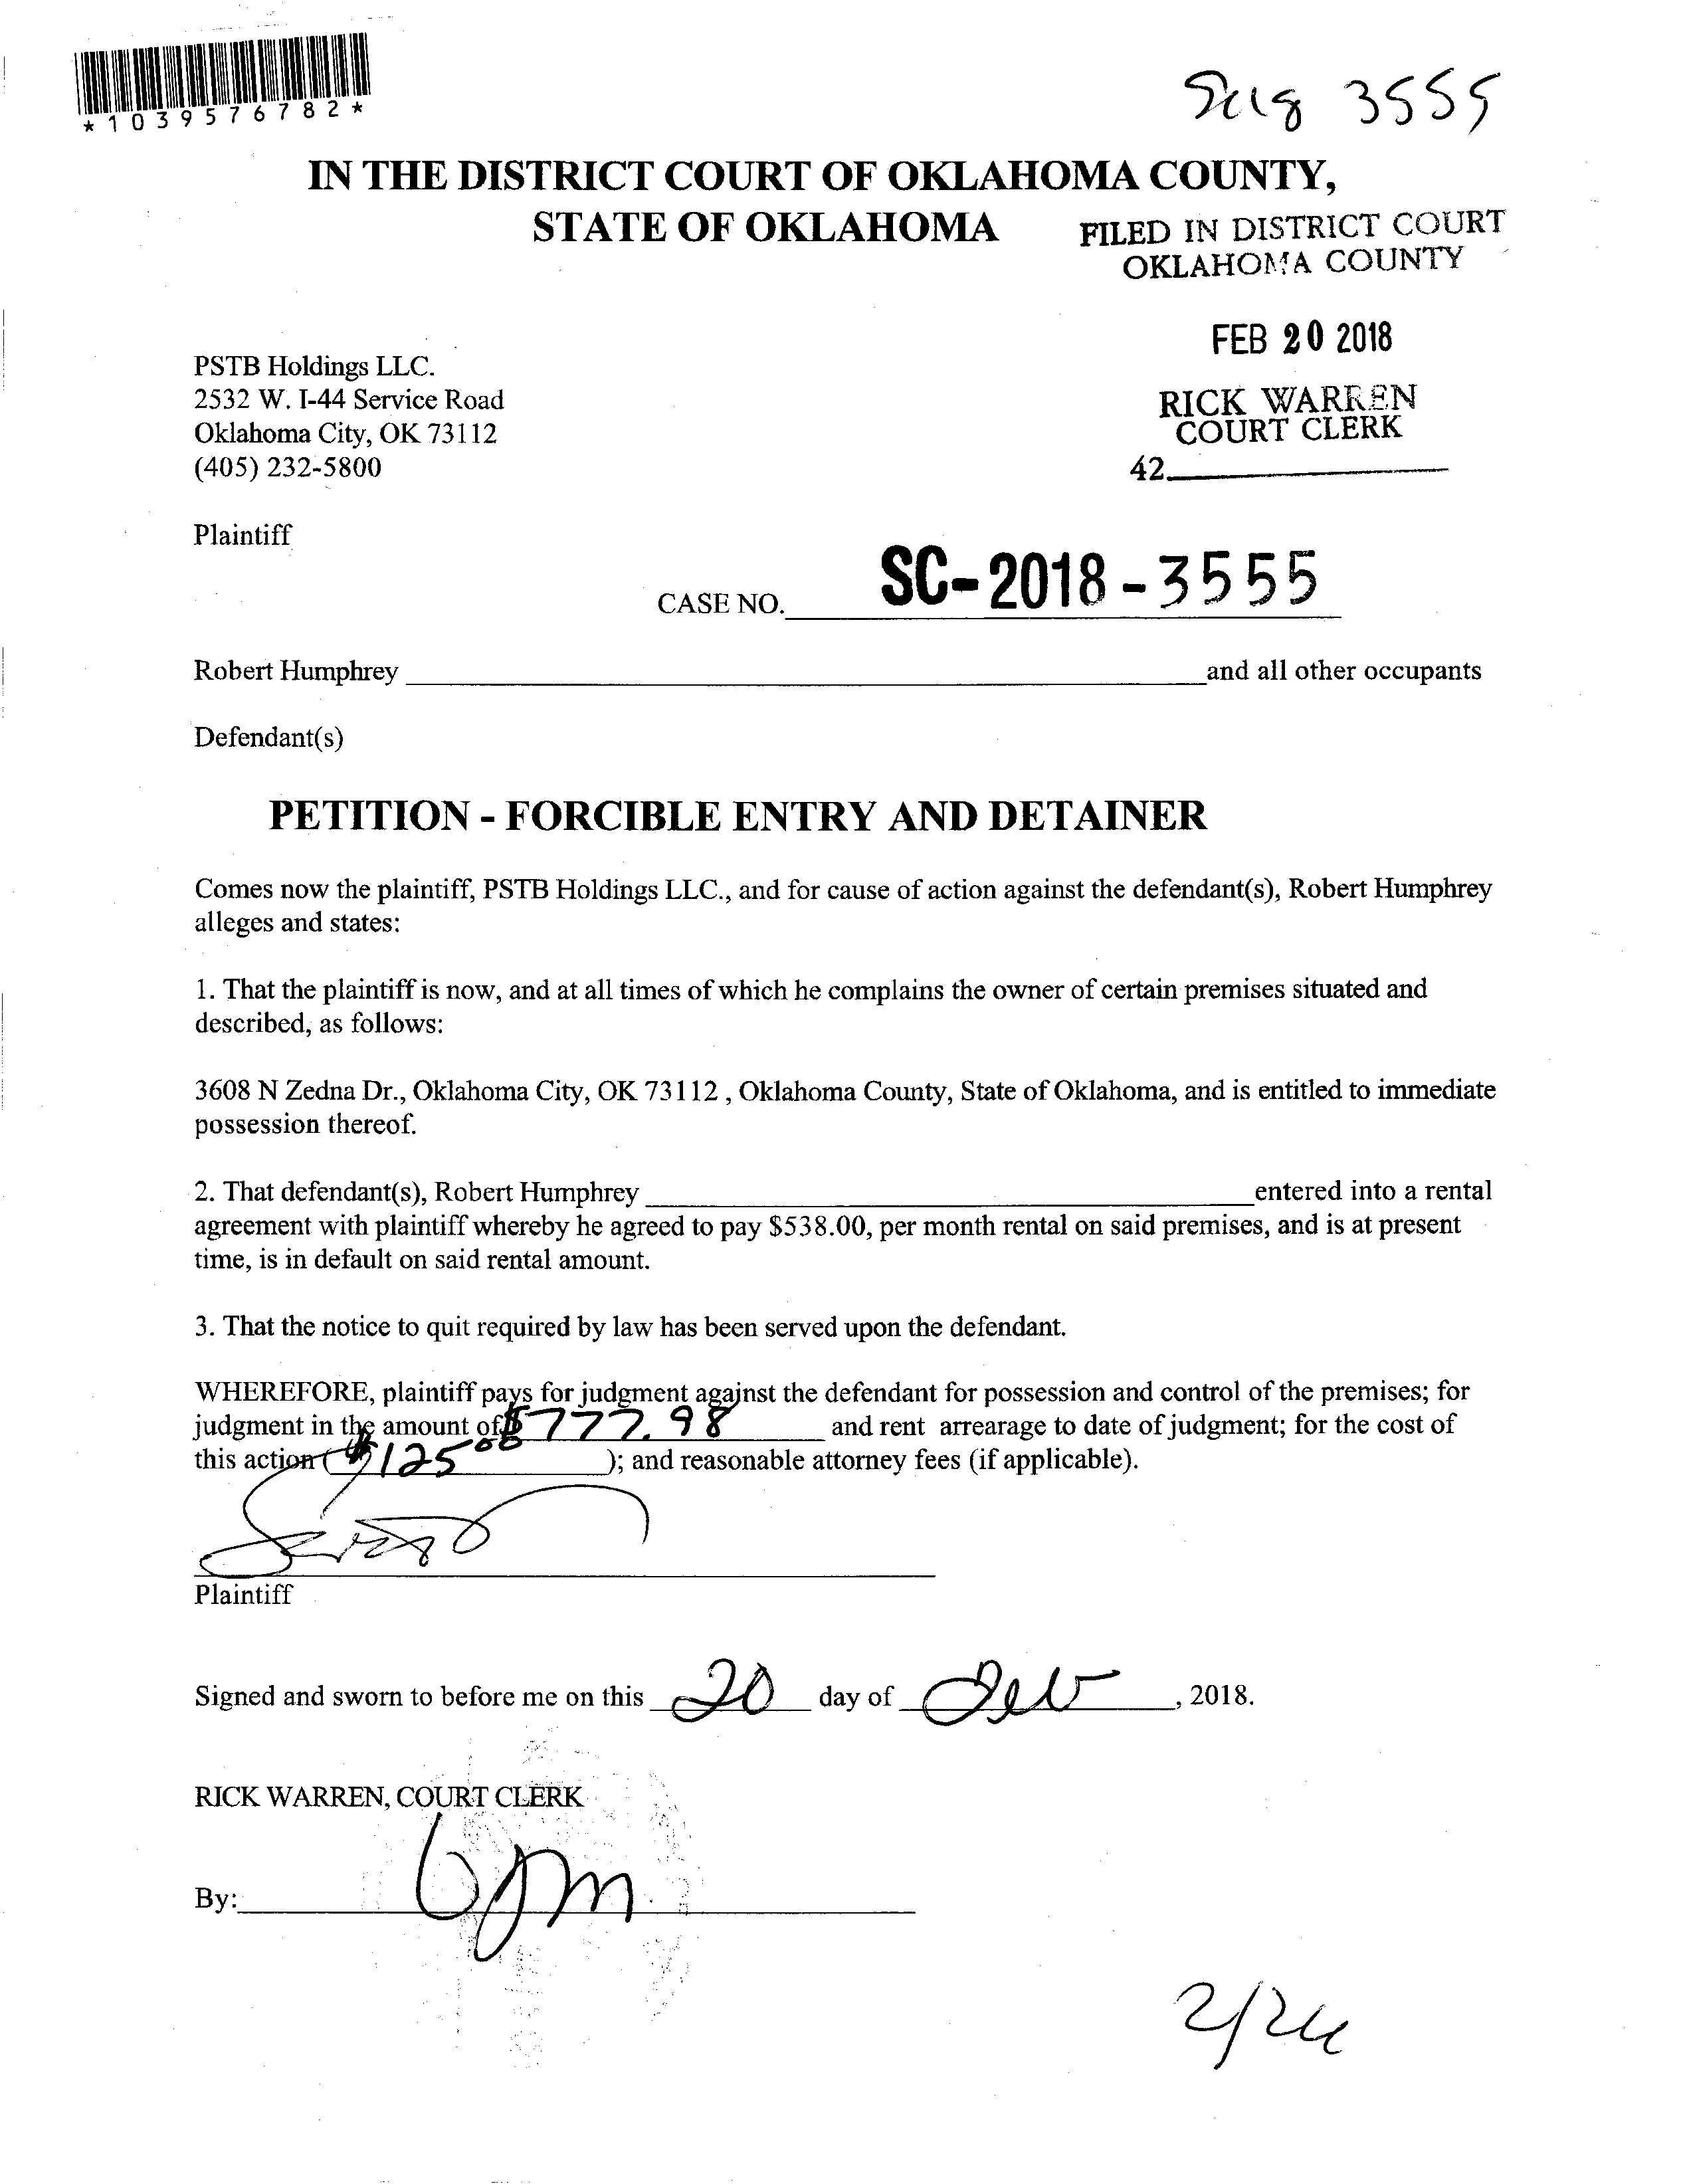 *1039576782*
3555
IN THE DISTRICT COURT OF OKLAHOMA COUNTY,
STATE OF OKLAHOMA
FILED IN DISTRICT COURT
OKLAHOMA COUNTY
FEB 20 2018
RICK WARREN
COURT CLERK
42
PSTB Holdings LLC.
2532 W. I-44 Service Road
Oklahoma City, OK 73112
(405) 232-5800
Plaintiff
CASE NO. SC-2018-3555
Robert Humphrey and all other occupants
Defendant(s)
PETITION - FORCIBLE ENTRY AND DETAINER
Comes now the plaintiff, PSTB Holdings LLC., and for cause of action against the defendant(s), Robert Humphrey
alleges and states:
1. That the plaintiff is now, and at all times of which he complains the owner of certain premises situated and
described, as follows:
3608 N Zedna Dr., Oklahoma City, OK 73112 , Oklahoma County, State of Oklahoma, and is entitled to immediate
possession thereof.
2. That defendant(s), Robert Humphrey entered into a rental
agreement with plaintiff whereby he agreed to pay $538.00, per month rental on said premises, and is at present
time, is in default on said rental amount.
3. That the notice to quit required by law has been served upon the defendant.
WHEREFORE, plaintiff pays for judgment against the defendant for possession and control of the premises; for
judgment in the amount of $777.98 and rent arrearage to date of judgment; for the cost of
this action ( $125 00 ); and reasonable attorney fees (if applicable).
Plaintiff
Signed and sworn to before me on this 20 day of Feb , 2018.
RICK WARREN, COURT CLERK
By: